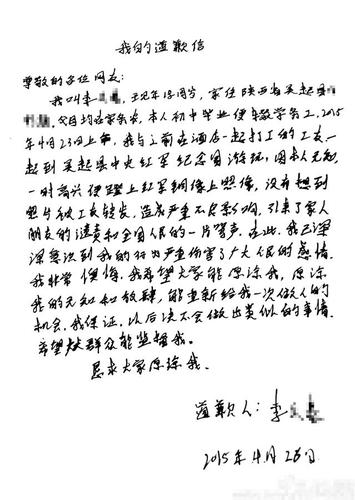 我的道歉信
尊敬的各位网友：
我叫李 现年18周岁，家住陕西省吴起县
父母均在家务农，本人初中毕业便辍学务工，2015
年4月23日上午，我与之前在酒店一起打工的工友一
起到吴起县中央红军纪念园游玩，因本人无知，
一时高兴便蹬上红军铜像上照像，没有想到
照片被工友转发，造成严重不良影响，引来了家人
朋友的谴责和全国人民的一片骂声。在此，我已深
深意识到我的行为严重伤害了广大人民的感情。
我非常懊悔，我希望大家能原谅我，原谅
我的无知和放肆，能重新给我一次做人的
机会。我保证，以后决不会做出类似的事情。
希望群众能监督我。
恳求大家原谅我。
道歉人：李
2015年4月26日